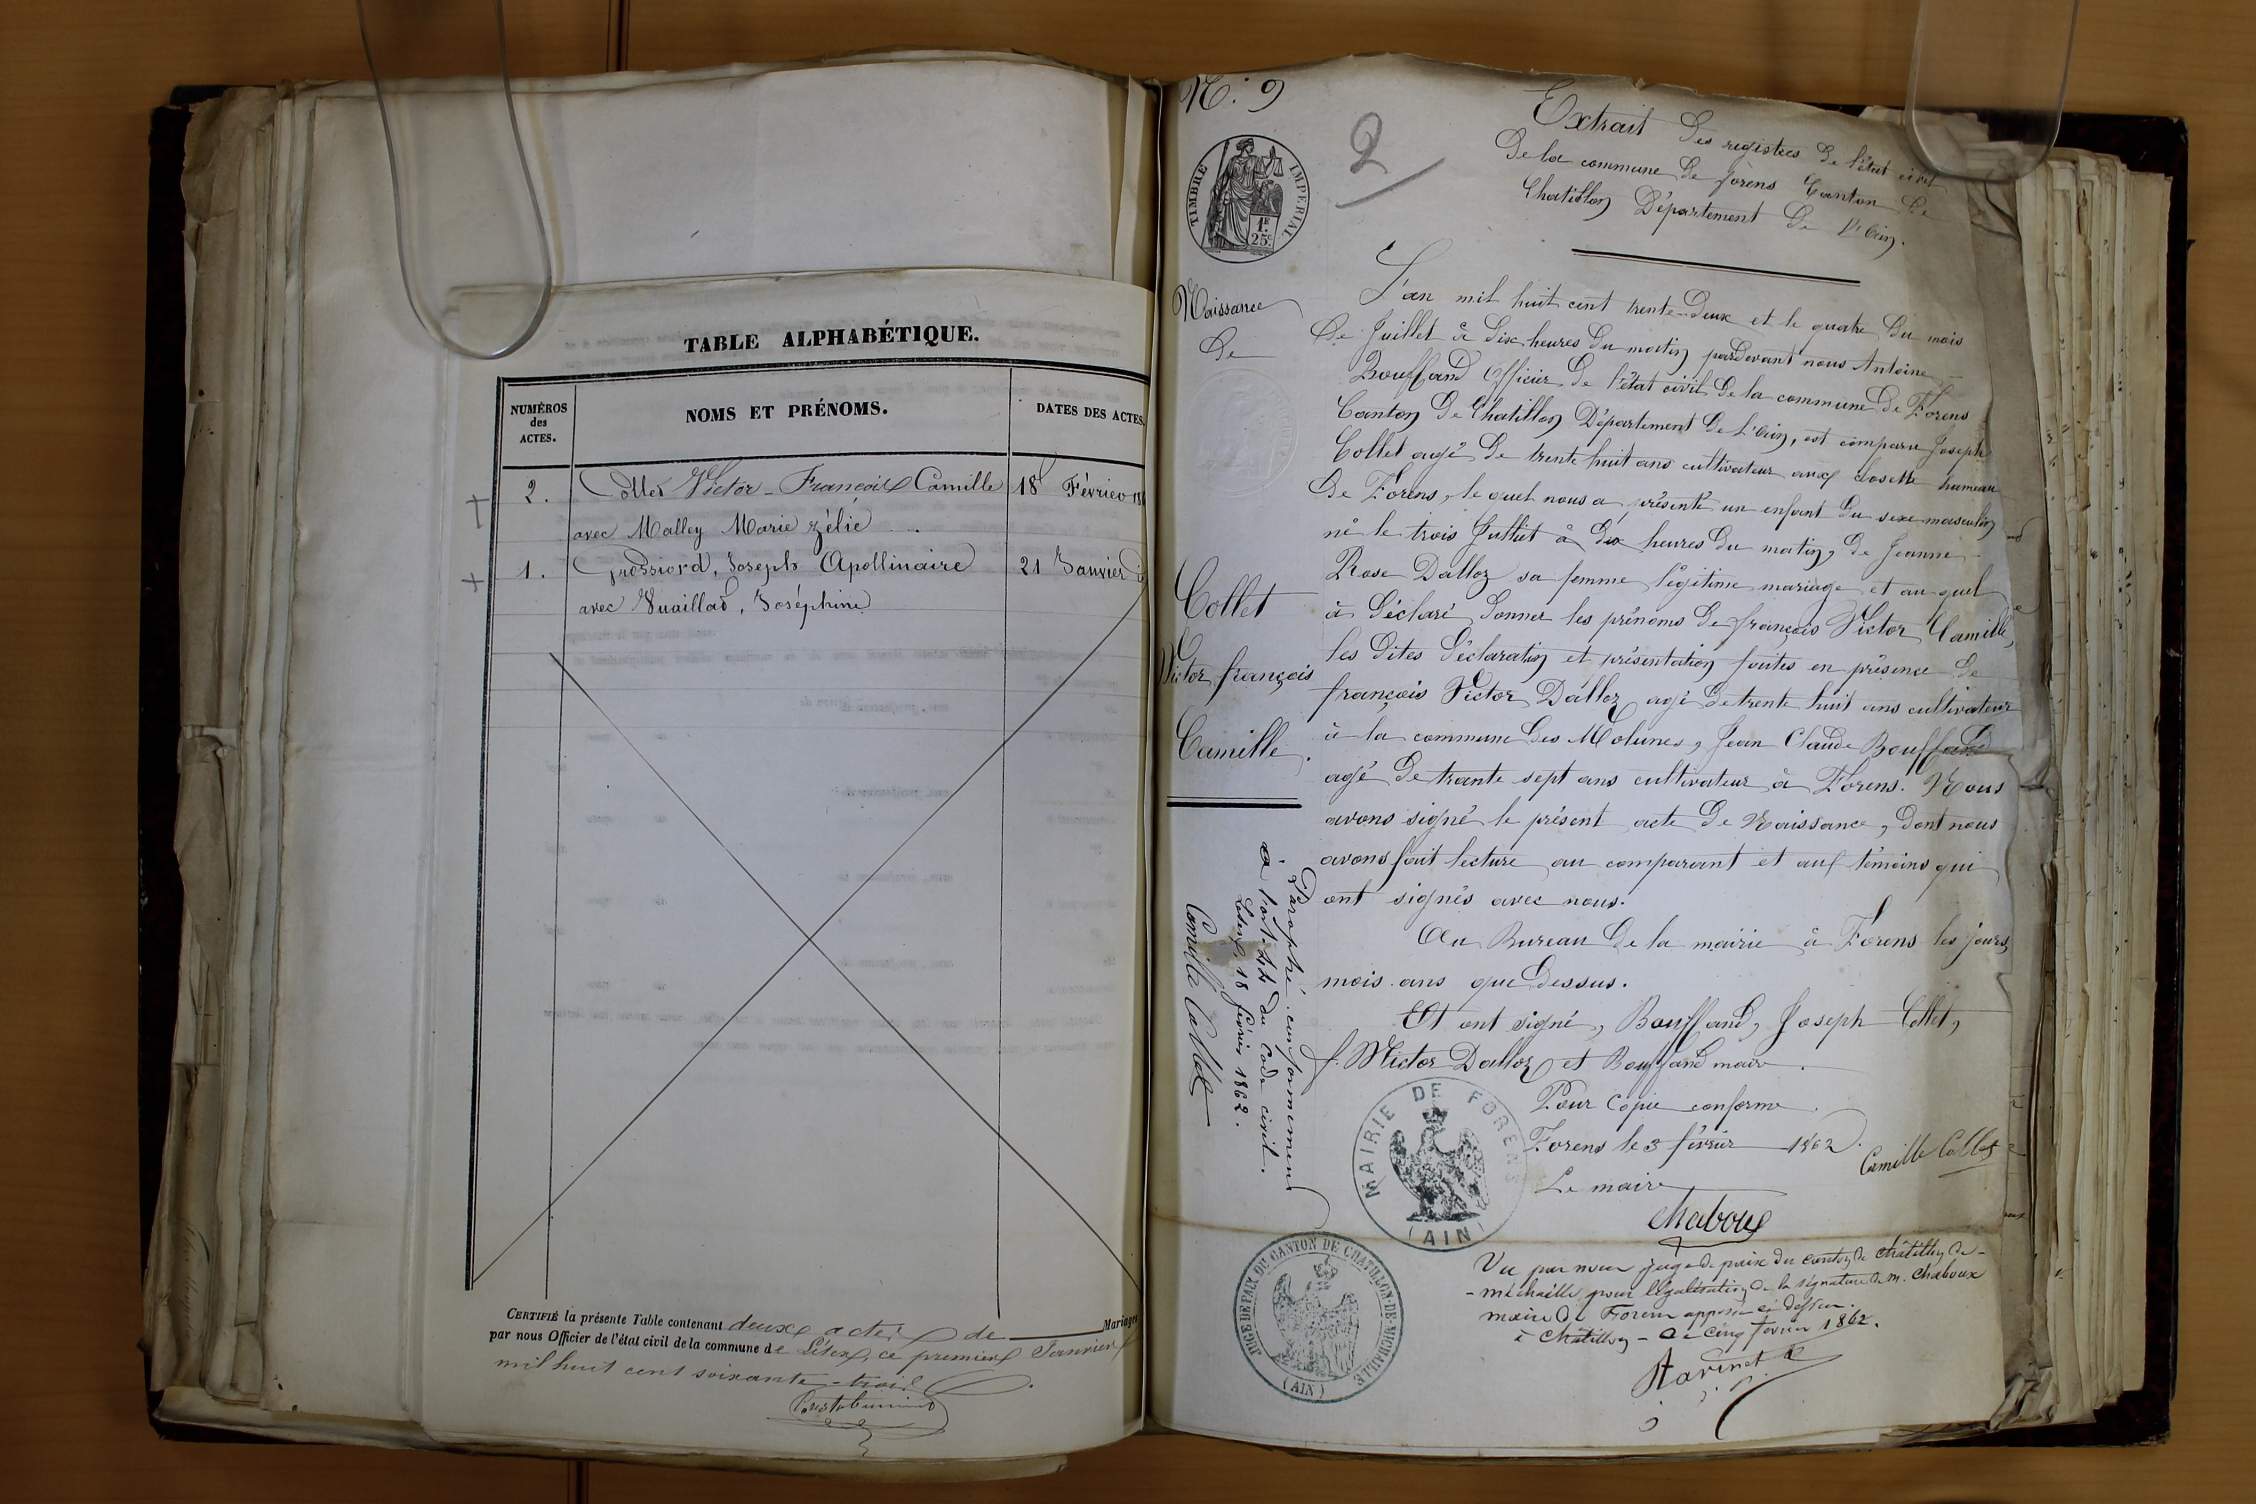 TABLE ALPHABÉTIQUE.
NUMÉROS
des
ACTES.
NOMS ET PRÉNOMS.
DATES DES ACTES.
2. Collet Victor-François Camille 18 Février
avec Malley Marie Zélie
1. Grossiord, Joseph Apollinaire 21 Janvier
avec Vuaillat, Joséphine
CERTIFIÉ la présente Table contenant deux actes de Mariages
par nous Officier de l'état civil de la commune de Lélex, ce premier Janvier
mil huit cent soixante-trois
N.° 9
2
TIMBRE IMPÉRIAL
1F.
25c.
Extrait des registres de l'état civil
De la commune de forens Canton de
Chatillon Département de l'Ain.
Naissance
De
Collet
Victor françois
Camille.
L'an mil huit cent trente-Deux et le quatre du mois
De Juillet à dix heures du matin pardevant nous Antoine
Bouffard officier de l'état civil de la commune de Forens
Canton de Chatillon Département de l'Ain, est comparu Joseph
Collet agé de trente huit ans cultivateur aux closette hameau
De Forens, le quel nous a présenté un enfant du sexe masculin
né le trois Juillet à dix heures du matin, de Jeanne
Rose Dalloz sa femme légitime mariage et au quel
à déclaré donner les prénoms de françois Victor Camille,
les dites déclaration et présentation faites en présence de
françois Victor Dalloz agé de trente huit ans cultivateur
à la commune des Molunes, Jean Claude Bouffard
agé de trante sept ans cultivateur à Forens. Nous
avons signé le présent acte de Naissance, dont nous
avons fait lecture au comparant et aux témoins qui
ont signés avec nous.
Au Bureau de la mairie à Forens les jours,
mois ans que dessus.
Et ont signé, Bouffard, Joseph Collet,
f. Victor Dalloz et Bouffard maire.
Pour Copie conforme
Forens le 3 février 1862.
Camille Collet
Le maire
Chaboux
Paraphé conformément
à l'art. 44 du Code civil.
Lélex, 18 février 1862.
Camille Collet
MAIRIE DE FORENS
(AIN)
JUGE DE PAIX DU CANTON DE CHATILLON-DE-MICHAILLE
(AIN)
Vu par nous juge de paix du canton de Châtillon de
-michaille, pour légalisation de la signature de M. Chaboux
maire de Forens apposée ci dessus.
à Châtillon - Le cinq février 1862.